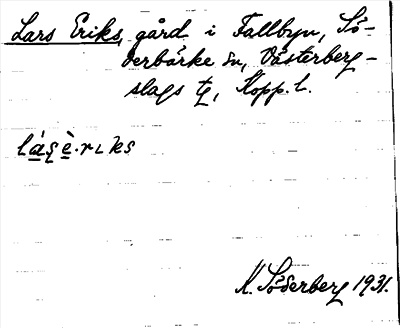 Lars Eriks, gård i Fallbyn, Sö-
derbärke sn, Västerberg-
slags tg, Kopp. l.
lá̱ʂè̱·rɩks
K. Söderberg 1931.